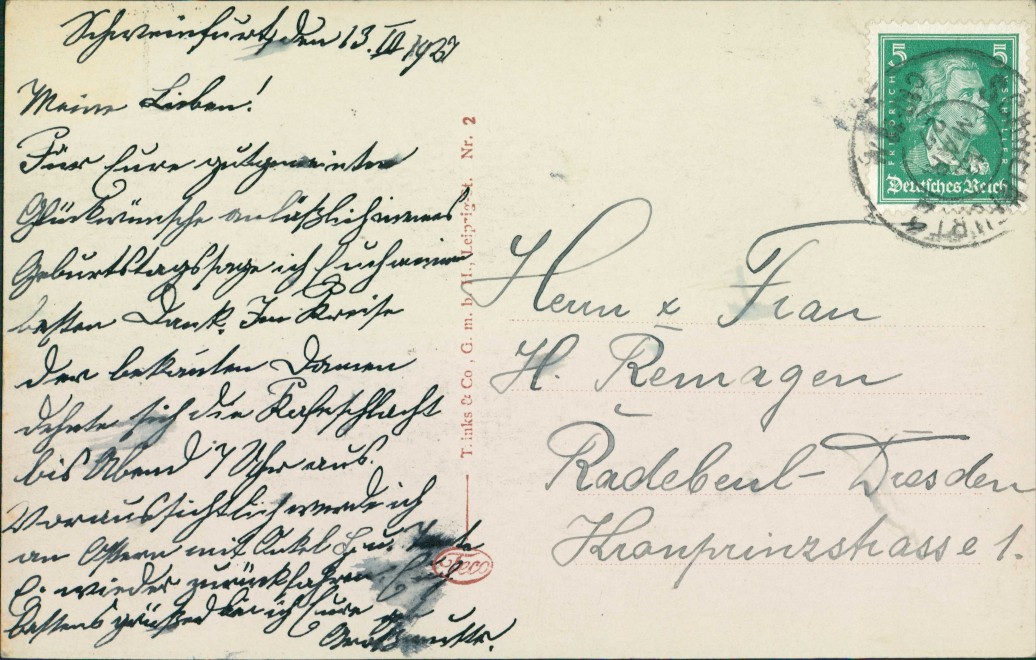 Schweinfurt, den 13. III 1927
Meine Lieben!
Für Eure gutgemeinten
Glückwünsche anläßlich meines
Geburtstags sage ich Euch meinen
besten Dank. Im Kreise
der bekannten Damen
dehnte sich die Kafeeschlacht
bis Abend 7 Uhr aus.
Voraussichtlich werde ich
an Ostern mit Onkel H. u. Tante
E. wieder zurückfahren.
bestens grüßend bin ich Eure
Großmutter.
Trinks & Co., G. m. b. H., Leipzig. Nr. 2
Treco
5 5
FRIEDRICH V. SCHILLER
Deutsches Reich
SCHWEINFURT
Herrn & Frau
H. Remagen
Radebeul-Dresden
Kronprinzstrasse 1.